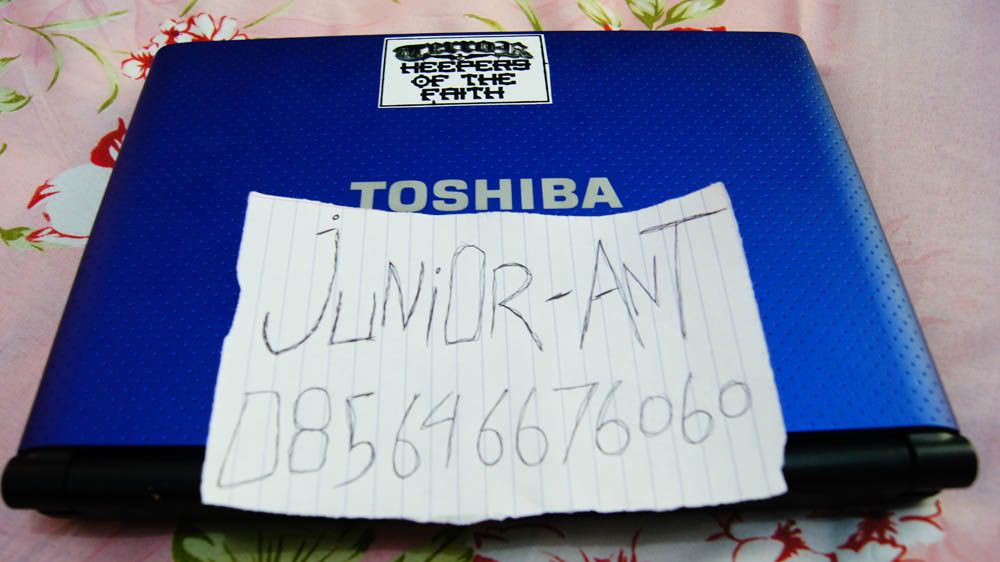 TERROR
KEEPERS
OF THE
FAITH
TOSHIBA
JUNiOR-ANT
085646676060